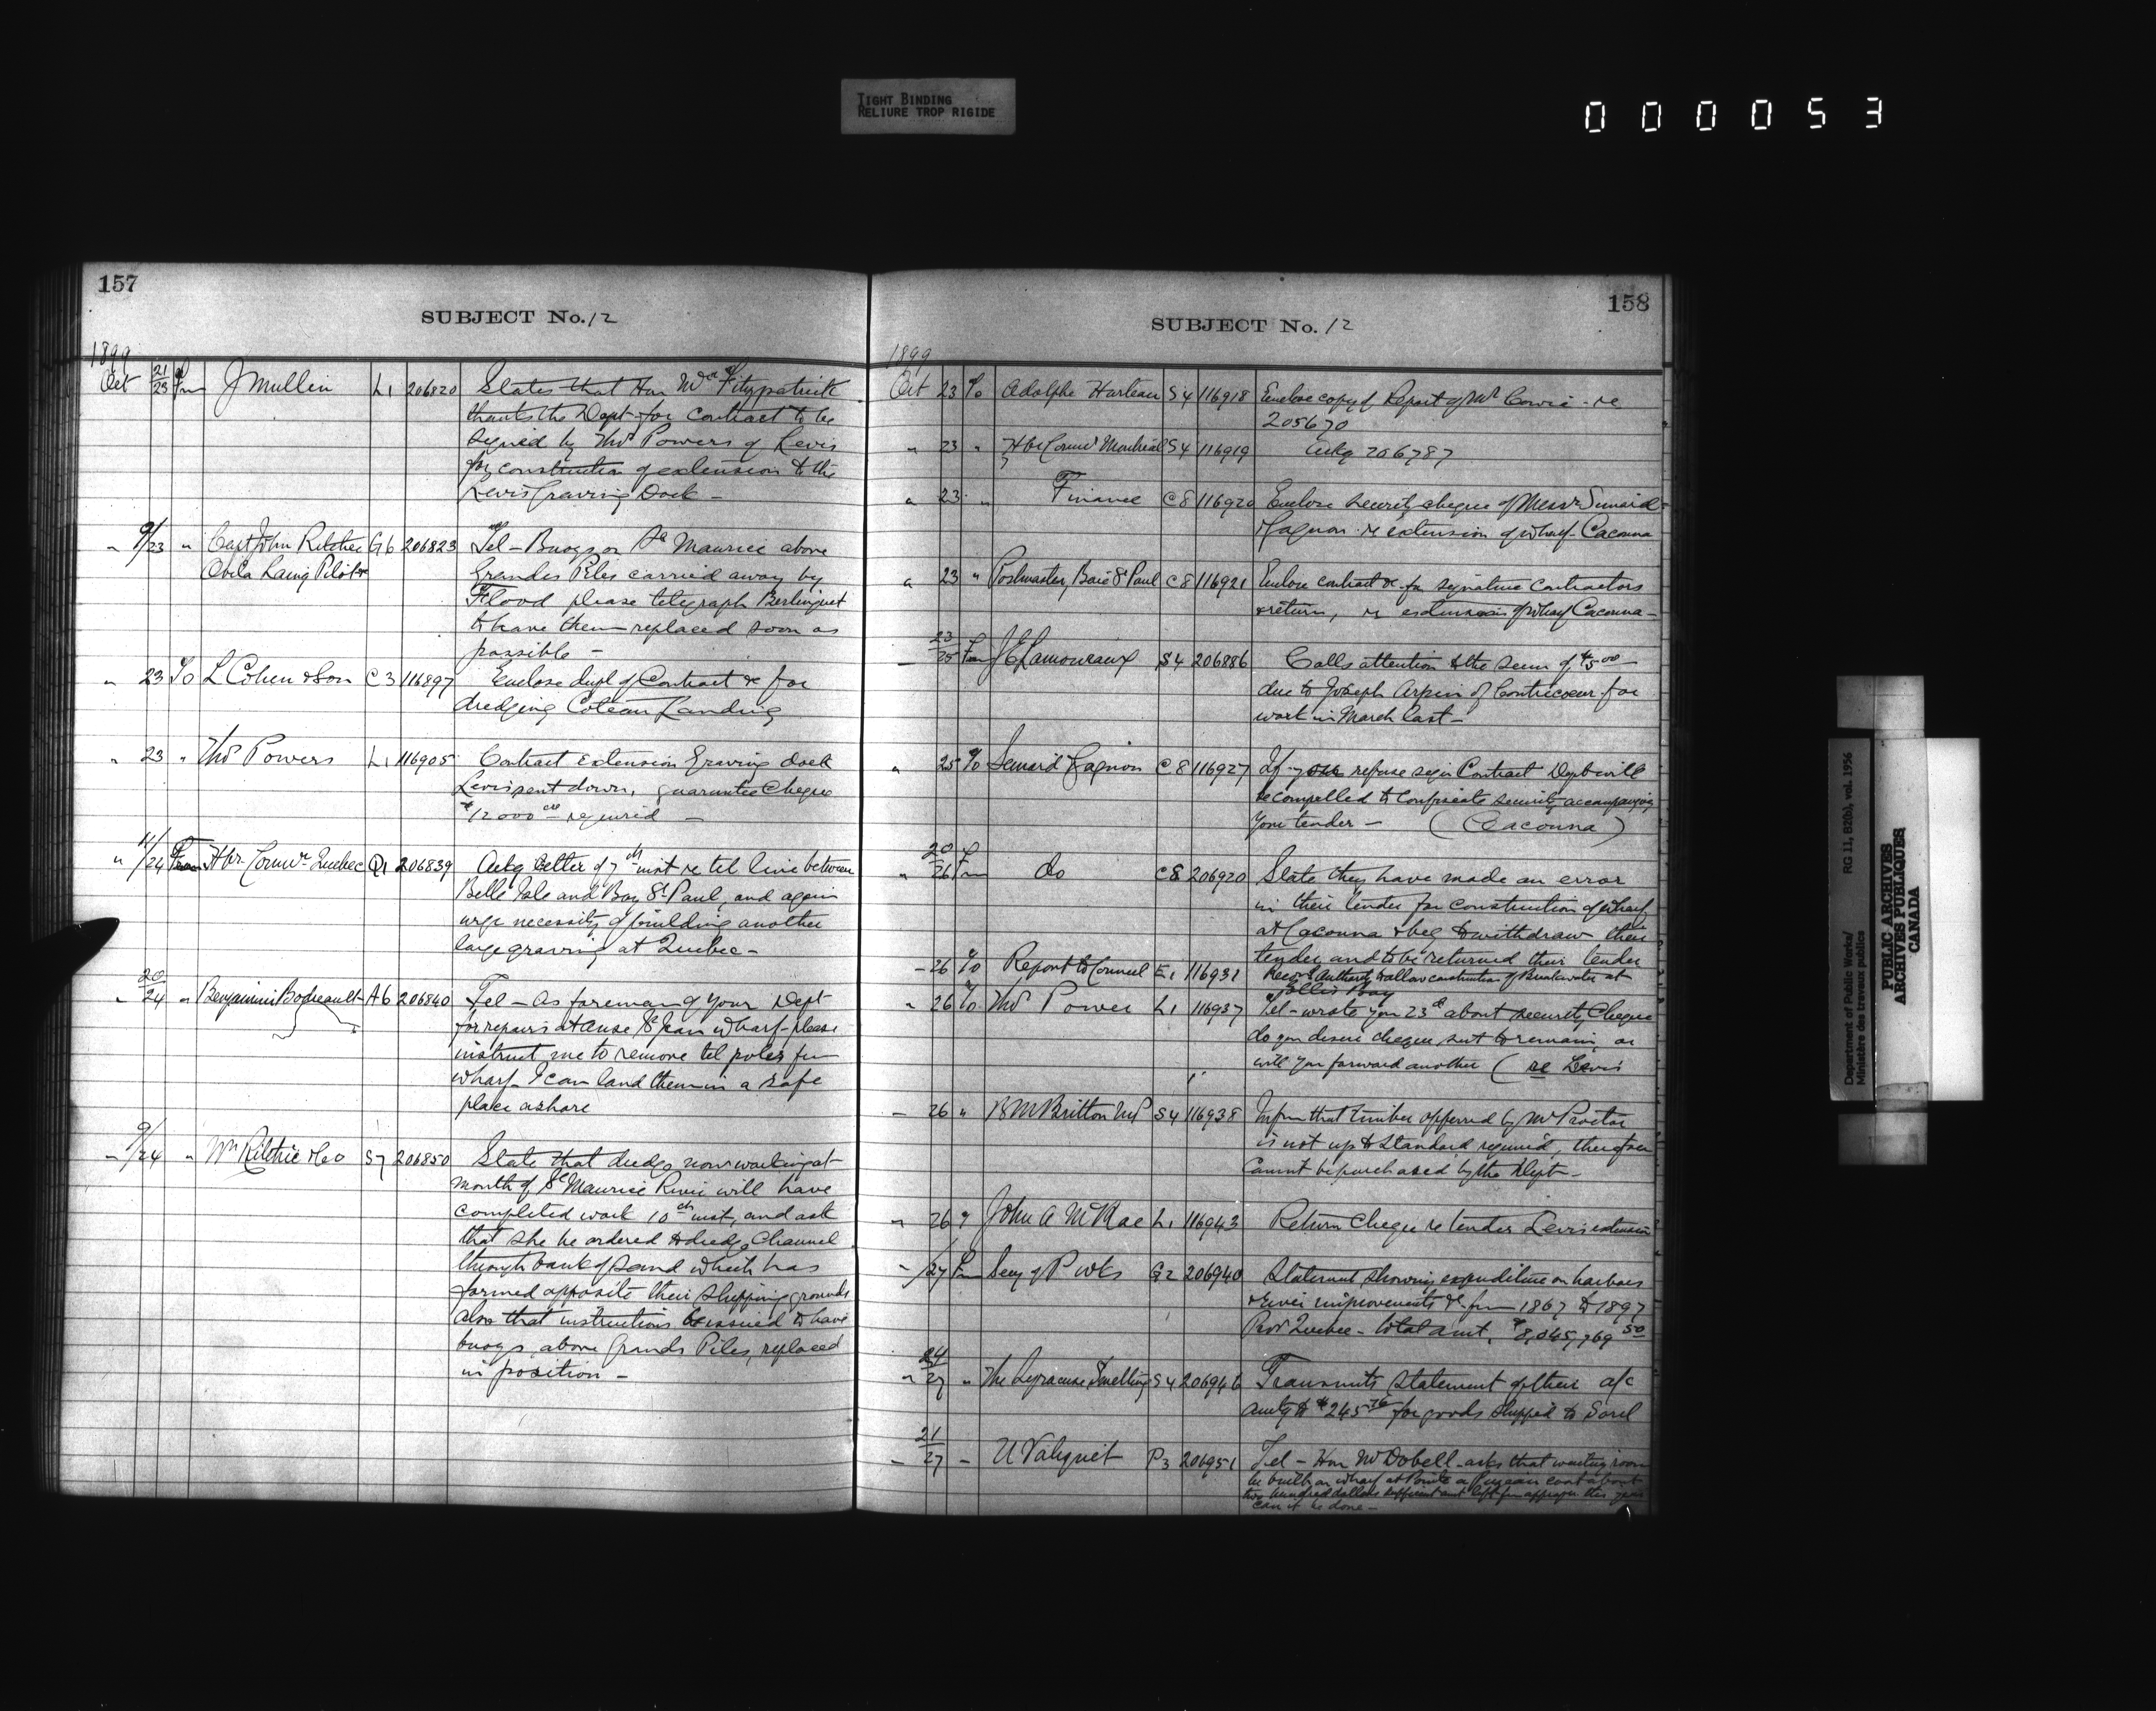 TIGHT BINDING
RELIURE TROP RIGIDE
000053
157
SUBJECT No. 12
1899
Oct 21/23 Fm J Mullin L1 206820 States that Hon Mr Fitzpatrick
thanks the Dept for contract to be
signed by Thos Powers of Levis
for construction of extension to the
Levis Graving Dock -
" 9/23 " Capt John Ritchie G6 206823 Tel - Buoys on St Maurice above
Ovila Laing Pilots
Grandes Piles carried away by
Flood please telegraph Berlinguet
to have them replaced soon as
possible -
" 23 To L Cohen & Son C3 116897 Enclose dupl of Contract &c for
dredging Coteau Landing
" 23 " Thos Powers L1 116905 Contract Extension Graving dock
Levis sent down, guarantee Cheque
$12000 00 required -
" 11/24 From Hbr. Commrs Quebec Q1 206839 Ackg letter of 7th inst re tel line between
Belle Isle and Bay St Paul, and again
urge necessity of building another
large graving at Quebec -
" 20/24 " Benjamin Bodreault A6 206840 Tel - As foreman of your Dept
for repairs at Anse St Jean wharf - please
instruct me to remove tel poles fm
wharf - I can land them in a safe
place ashore
" 9/24 " Wm Ritchie & Co S7 206850 State that dredge now working at
mouth of St Maurice River will have
completed work 10th inst, and ask
that she be ordered to dredge Channel
through bank of sand which has
formed opposite their shipping grounds
also that instructions be issued to have
buoys above Grands Piles, replaced
in position -
158
SUBJECT No. 12
1899
Oct 23 To Adolphe Hurteau S4 116918 Enclose copy of Report of Mr Cowie - re
205670
" 23 " Hbr Commrs Montreal S4 116919 Ackg 206787
" 23 " Finance C8 116920 Enclose security cheque of Messrs Simard
& Gagnon re extension of wharf - Cacouna
" 23 " Postmaster, Baie St Paul C8 116921 Enclose contract &c for signature contractors
& return, re extension of wharf Cacouna -
23/25 Fm J E Lamoureaux S4 206886 Calls attention to the sum of $5 00
due to Joseph Arpin of Contrecoeur for
work in March last -
" 25 To Simard & Gagnon C8 116927 If you refuse sign Contract Dept will
be compelled to confiscate security accompanying
your tender - (Cacouna)
" 20/26 Fm do C8 206920 State they have made an error
in their tender for construction of wharf
at Cacouna & beg to withdraw their
tender and to be returned their tender
" 26 To Report to Council E1 116931 Recom authority to allow construction of Breakwater at
Ellis Bay
" 26 To Thos Power L1 116937 Tel - wrote you 23d about security Cheque
do you desire cheque sent to remain, or
will you forward another (re Levis
- 26 " B M Britton MP S4 116938 Inform that timber offered by Mr Proctor
is not up to Standard required, therefore
Cannot be purchased by the Dept -
" 26 " John A McRae L1 116943 Return Cheque re tender Levis extension
" /27 Fm Secy of P wks G2 206940 Statement showing expenditure on harbors
& river improvements &c from 1867 to 1897
Prov Quebec - total amt, $8,045,769 50
" 24/27 " The Syracuse Smelting S4 206946 Transmits statement of their a/c
amtg to $245 76 for goods shipped to Sorel
21/27 - U Valiquet P3 206951 Tel - Hon Mr Dobell - asks that waiting room
be built on wharf at Pointe a Pizeau cost about
two hundred dollars sufficient amt left fm appropn this year
can it be done -
Department of Public Works/
Ministère des travaux publics
RG 11, B2(b), vol. 1956
PUBLIC ARCHIVES
ARCHIVES PUBLIQUES
CANADA